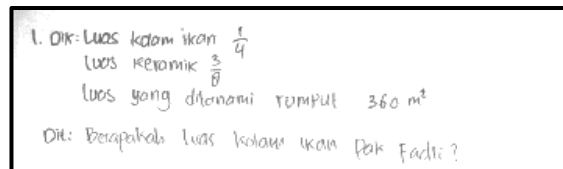 1. Dik: Luas kolam ikan 1/4
Luas keramik 3/8
luas yang ditanami rumput 360 m²
Dit: Berapakah luas kolam ikan Pak Fadli?